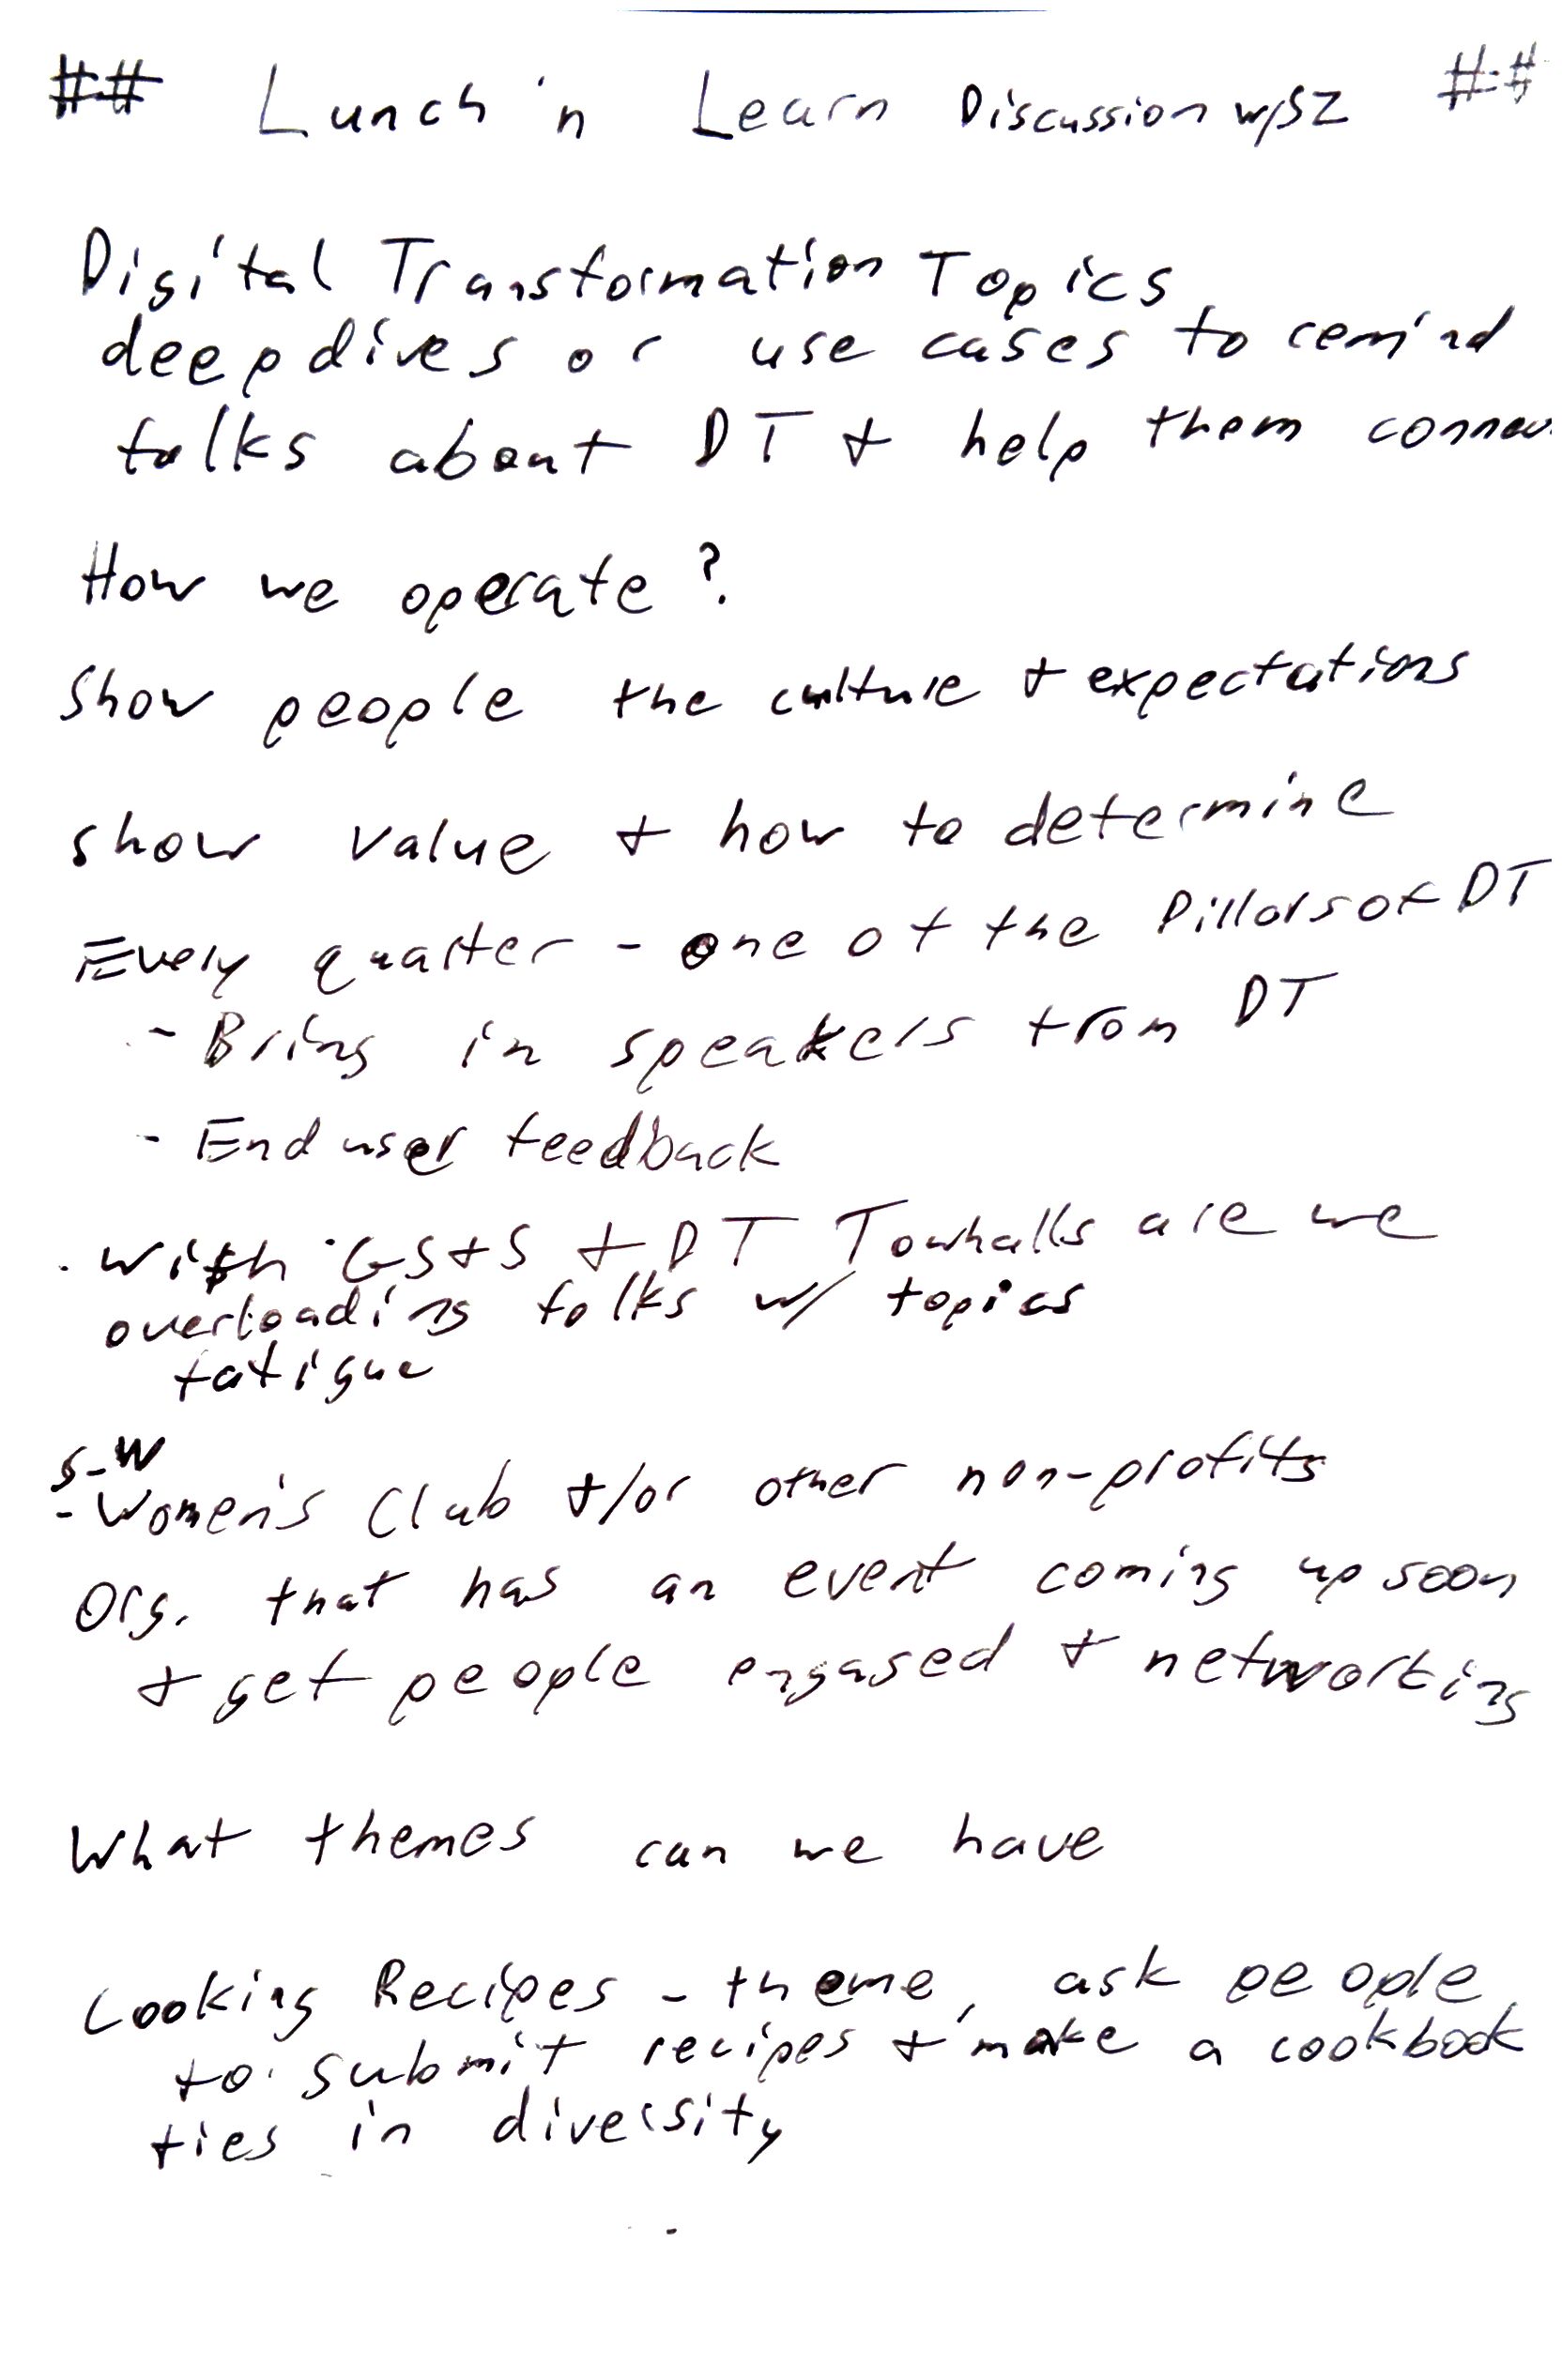 ## Lunch 'n Learn Discussion w/SZ ##
Digital Transformation Topics
deep dives or use cases to remind
folks about DT & help them
How we operate?
Show people the culture & expectations
show value & how to determine
Every quarter - one of the Pillars of DT
- Bring in speakers from DT
- End user feedback
. with GS+S + DT Towhalls are we
overloading folks w/ topics
fatigue
S-W
- Women's Club &/or other non-profits
Org. that has an event coming up soon
& get people engaged & networking
What themes can we have
Cooking Recipes - theme, ask people
to submit recipes & make a cookbook
ties in diversity